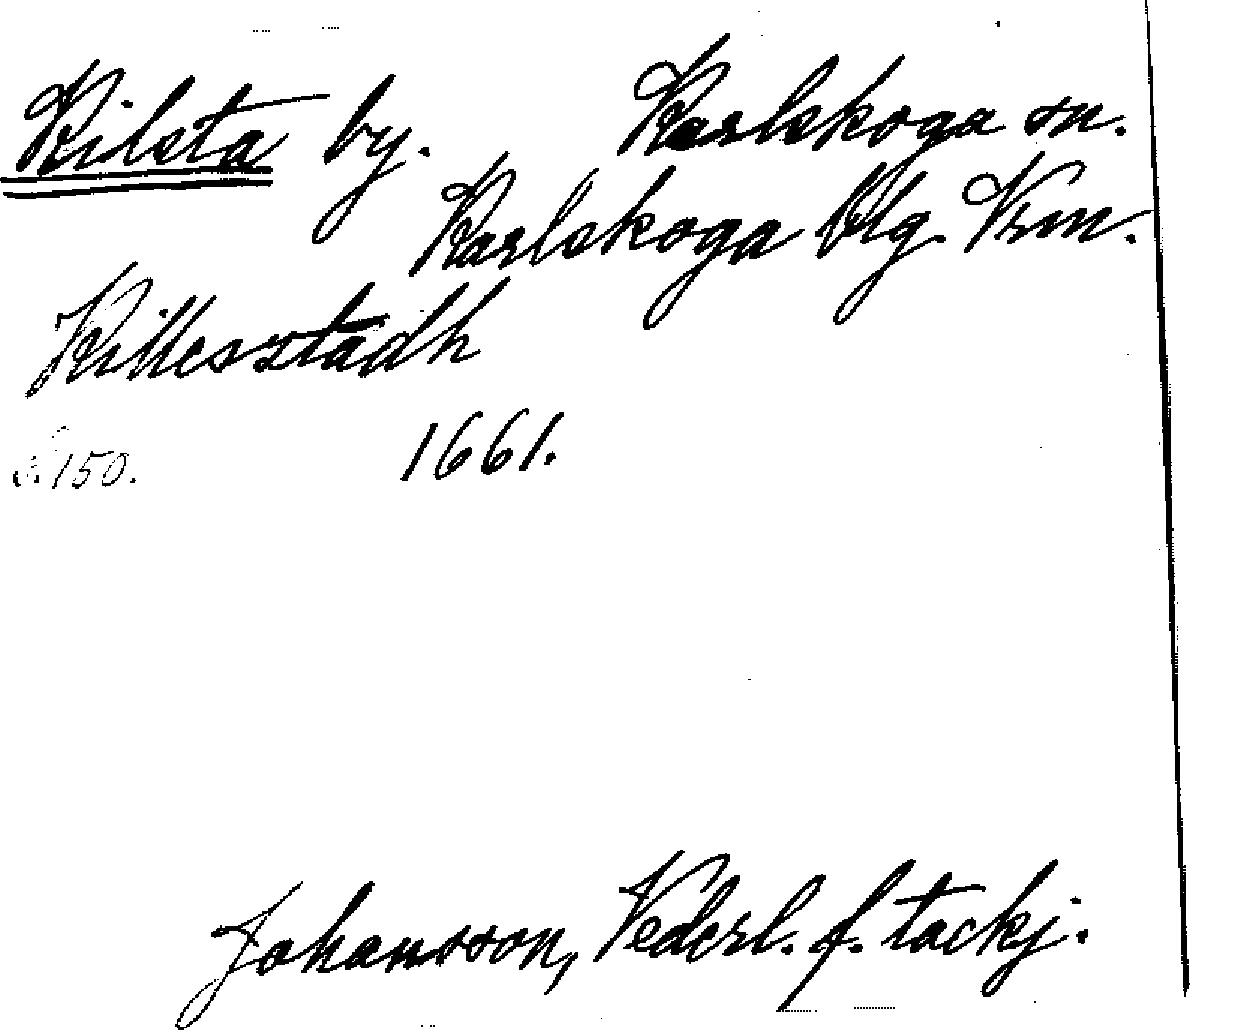 Kilsta by. Karlskoga sn.
Karlskoga Blg. Vrm.
Killesztadh
s. 150. 1661.
Johansson, Vederl. f. tackj.